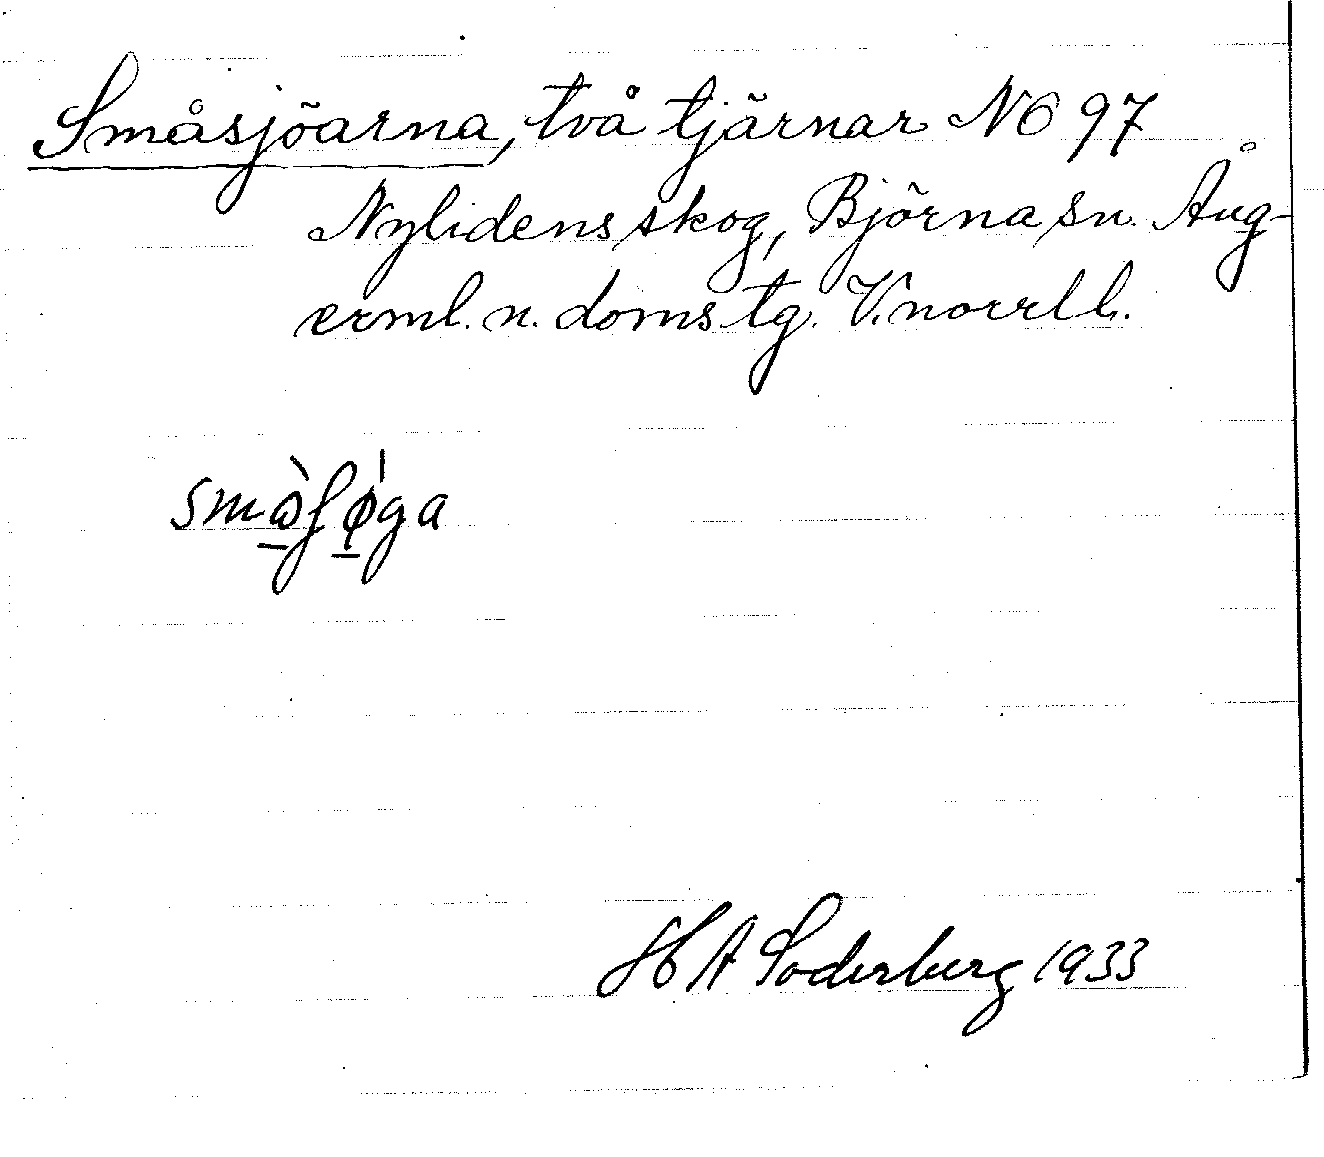 Småsjöarna, två tjärnar NO 97
Nylidens skog, Björna sn. Ång-
erml. n. doms tg. V.norrl l.
smòʃǿga
H A Söderberg 1933